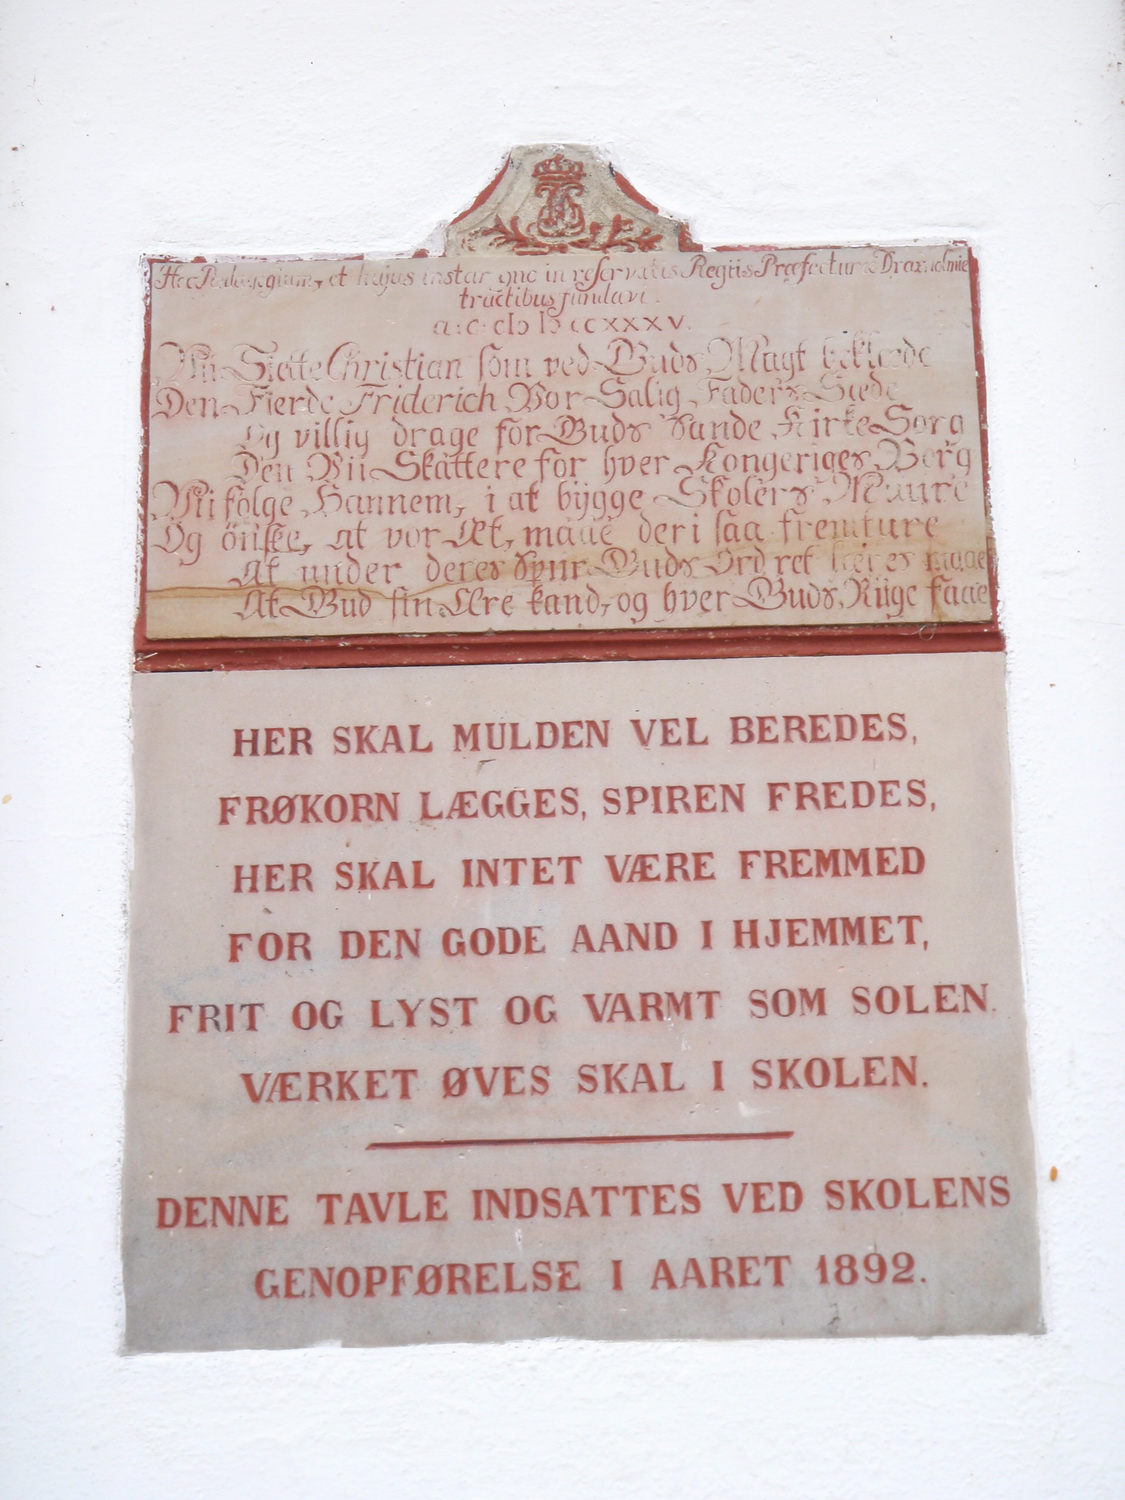 Hoc Pædagogium, et hujus instar in reservatis Regiis Præfecturæ Draxholmie
tractibus fundavi.
Siette Christian som ved Guds Magt beklæde
Den Fierde Friderich Vor Salig Faders Sæde
Og villig drage for Guds Sande Kirke Sorg
Den Vii Skattere for hver Kongeriges Borg
Vi følge Hannem, i at bygge Skolers Muure
Og ønske, at vor Æt, maae deri saa fremture
At under deres Guds Ord ret læres maae
At Gud sin Ære kand, og hver Guds Riige faae
HER SKAL MULDEN VEL BEREDES,
FRØKORN LÆGGES, SPIREN FREDES,
HER SKAL INTET VÆRE FREMMED
FOR DEN GODE AAND I HJEMMET,
FRIT OG LYST OG VARMT SOM SOLEN.
VÆRKET ØVES SKAL I SKOLEN.
DENNE TAVLE INDSATTES VED SKOLENS
GENOPFØRELSE I AARET 1892.